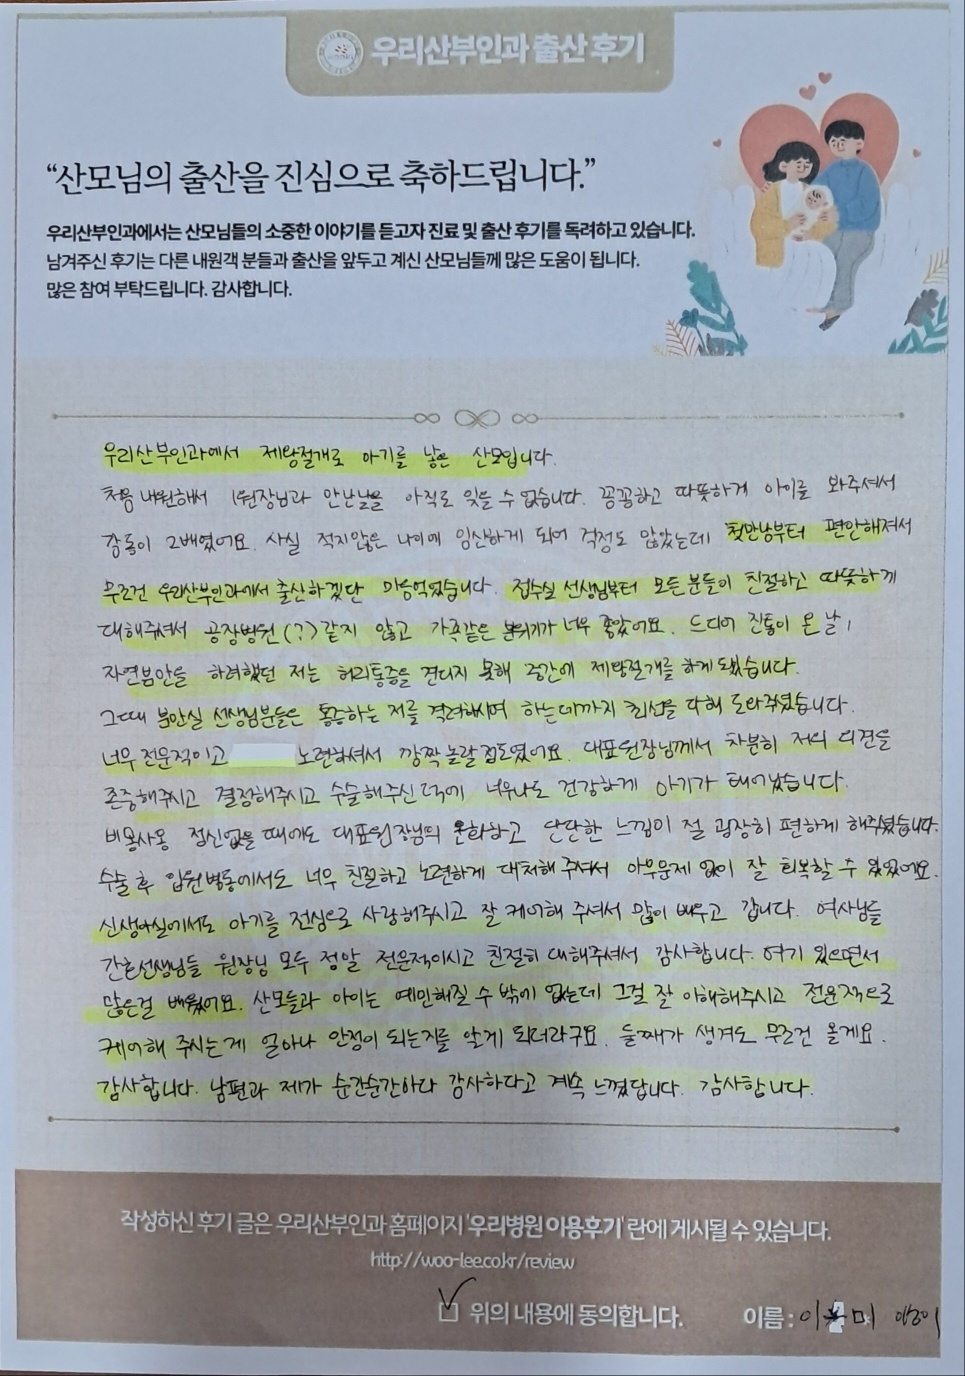 우리산부인과 출산 후기
“산모님의 출산을 진심으로 축하드립니다.”
우리산부인과에서는 산모님들의 소중한 이야기를 듣고자 진료 및 출산 후기를 독려하고 있습니다.
남겨주신 후기는 다른 내원객 분들과 출산을 앞두고 계신 산모님들께 많은 도움이 됩니다.
많은 참여 부탁드립니다. 감사합니다.
우리산부인과에서 제왕절개로 아기를 낳은 산모입니다.
처음 내원해서 1원장님과 만난날을 아직도 잊을 수 없습니다. 꼼꼼하고 따뜻하게 아이를 봐주셔서
감동이 2배였어요. 사실 적지않은 나이에 임신하게 되어 걱정도 많았는데 첫만남부터 편안해져서
무조건 우리산부인과에서 출산하겠단 마음먹었습니다. 접수실 선생님부터 모든분들이 친절하고 따뜻하게
대해주셔서 공장병원(?)같지 않고 가족같은 분위기가 너무 좋았어요. 드디어 진통이 온 날,
자연분만을 하려했던 저는 허리통증을 견디지 못해 중간에 제왕절개를 하게 됐습니다.
그때 분만실 선생님분들은 통증하는 저를 격려해시며 하는데까지 최선을 다해 도와주셨습니다.
너무 전문적이고 노련하셔서 깜짝 놀랄 정도였어요. 대표원장님께서 차분히 저의 의견을
존중해주시고 결정해주시고 수술해주신 덕에 너무나도 건강하게 아기가 태어났습니다.
비몽사몽 정신없을 때에도 대표원장님의 온화하고 단단한 느낌이 절 굉장히 편하게 해주셨습니다.
수술 후 입원병동에서도 너무 친절하고 노련하게 대처해 주셔서 아무문제 없이 잘 회복할 수 있었어요.
신생아실에서도 아기를 진심으로 사랑해주시고 잘 케어해 주셔서 많이 배우고 갑니다. 여사님들
간호선생님들 원장님 모두 정말 전문적이시고 친절히 대해주셔서 감사합니다. 여기 있으면서
많은걸 배웠어요. 산모들과 아이는 예민해질 수 밖에 없는데 그걸 잘 이해해주시고 전문적으로
케어해 주시는게 얼마나 안정이 되는지를 알게 되더라구요. 둘째가 생겨도 무조건 올게요.
감사합니다. 남편과 제가 순간순간마다 감사하다고 계속 느꼈답니다. 감사합니다.
작성하신 후기 글은 우리산부인과 홈페이지 '우리병원 이용후기' 란에 게시될 수 있습니다.
http://woo-lee.co.kr/review
위의 내용에 동의합니다. 이름 : 이 미